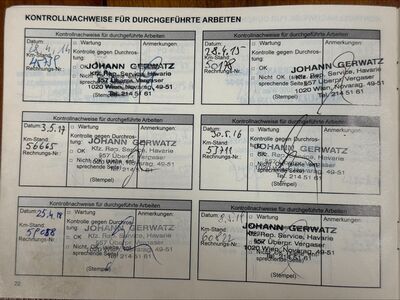 KONTROLLNACHWEISE FÜR DURCHGEFÜHRTE ARBEITEN
Kontrollnachweise für durchgeführte Arbeiten
Datum: 28.4.14
□ Wartung
Anmerkungen:
Kontrolle gegen Durchros-
Km-Stand:
□ OK
Rechnungs-Nr.
□ Nicht OK
JOHANN GERWATZ
Kfz. Rep. Service, Havarie
§57 Überpr. Vergaser
1020 Wien, Novarag. 49-51
Tel. 214 51 61
(Stempel)
Kontrollnachweise für durchgeführte Arbeiten
Datum: 28.4.15
□ Wartung
Anmerkungen:
Kontrolle gegen Durchros-
Km-Stand: 50178
□ OK
Rechnungs-Nr.
□ Nicht OK
sprechende Seite
JOHANN GERWATZ
Kfz. Rep. Service, Havarie
§57 Überpr. Vergaser
1020 Wien, Novarag. 49-51
Tel. 214 51 61
(Stempel)
Kontrollnachweise für durchgeführte Arbeiten
Datum: 3.5.17
□ Wartung
Anmerkungen:
Kontrolle gegen Durchros-
Km-Stand: 56665
□ OK
Rechnungs-Nr.
□ Nicht OK
sprechende Seite
JOHANN GERWATZ
Kfz. Rep. Service, Havarie
§57 Überpr. Vergaser
1020 Wien, Novarag. 49-51
Tel. 214 51 61
(Stempel)
Kontrollnachweise für durchgeführte Arbeiten
Datum: 30.5.16
□ Wartung
Anmerkungen:
Kontrolle gegen Durchros-
Km-Stand: 53711
□ OK
Rechnungs-Nr.
□ Nicht OK
sprechende Seite
JOHANN GERWATZ
Kfz. Rep. Service, Havarie
§57 Überpr. Vergaser
1020 Wien, Novarag. 49-51
Tel. 214 51 61
(Stempel)
Kontrollnachweise für durchgeführte Arbeiten
Datum: 25.4.18
□ Wartung
Anmerkungen:
Kontrolle gegen Durchros-
Km-Stand: 59088
□ OK
Rechnungs-Nr.
□ Nicht OK
sprechende Seite
JOHANN GERWATZ
Kfz. Rep. Service, Havarie
§57 Überpr. Vergaser
1020 Wien, Novarag. 49-51
Tel. 214 51 61
(Stempel)
Kontrollnachweise für durchgeführte Arbeiten
Datum:
□ Wartung
Anmerkungen:
Kontrolle gegen Durchros-
Km-Stand:
□ OK
Rechnungs-Nr.
□ Nicht OK
sprechende Seite
JOHANN GERWATZ
Kfz. Rep. Service, Havarie
§57 Überpr. Vergaser
1020 Wien, Novarag. 49-51
Tel. 214 51 61
(Stempel)
22